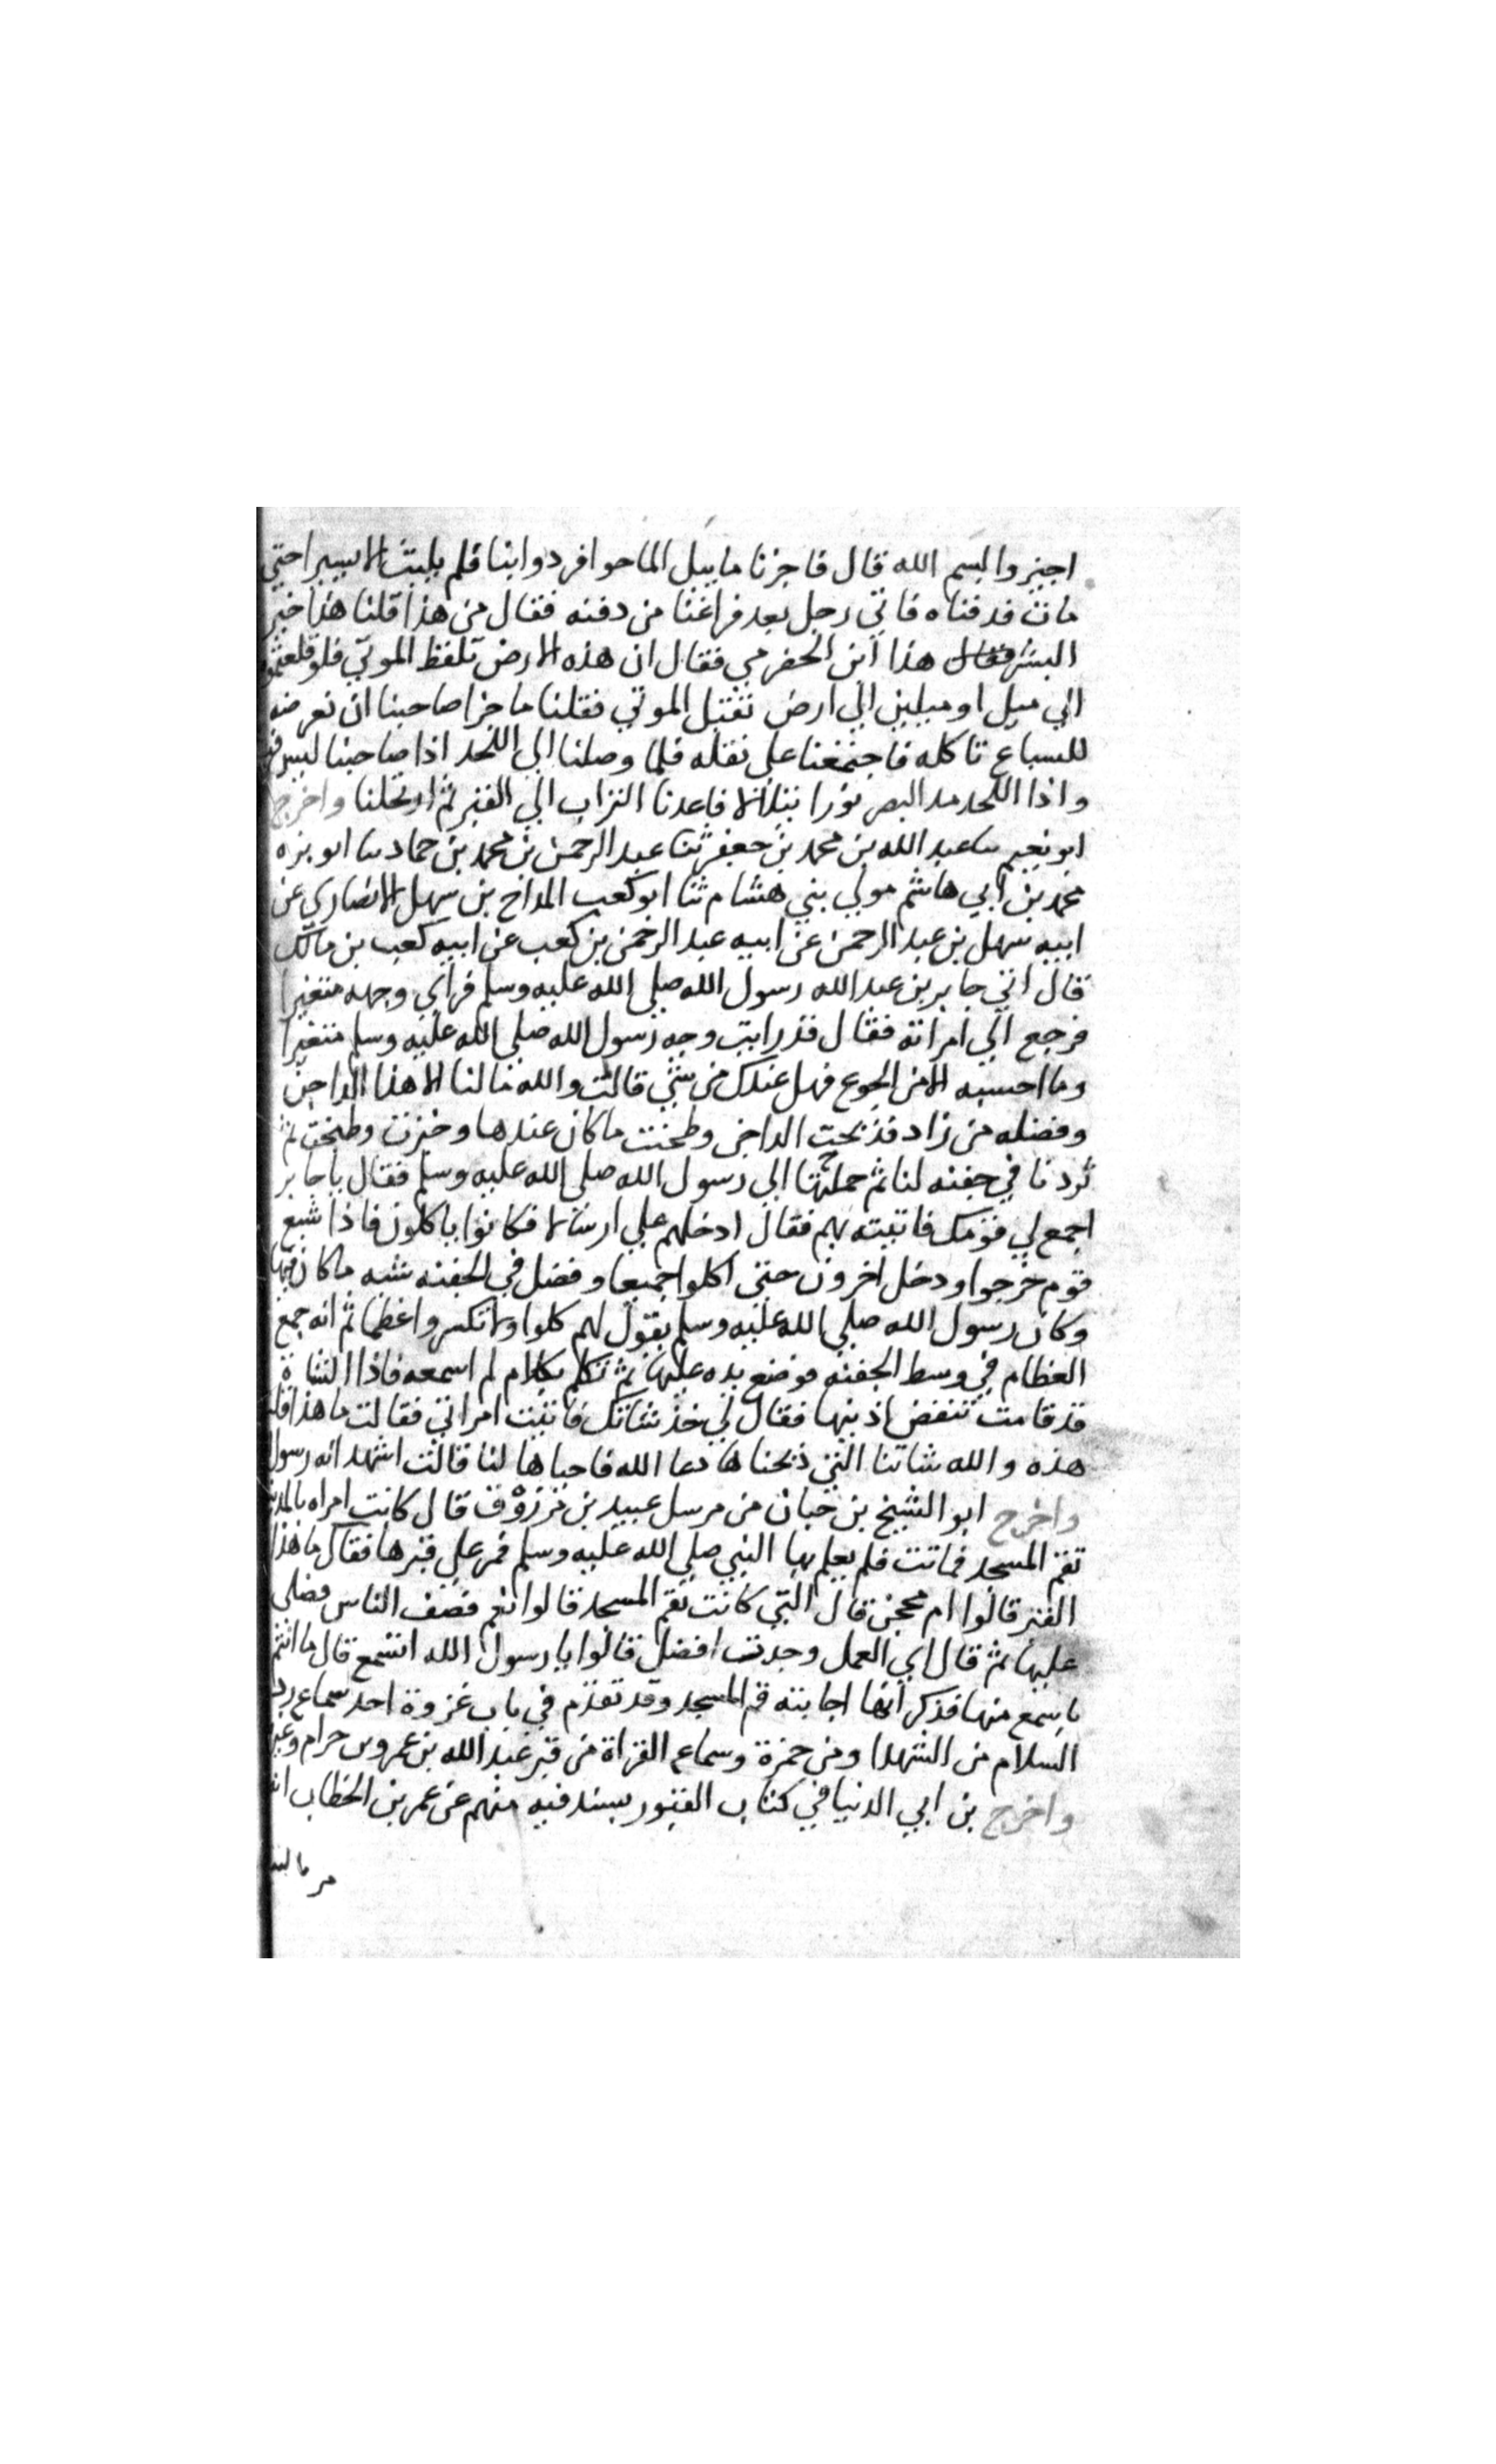 اجيزوا بسم الله قال فاجزنا ما يبل الما حوافر دوابنا فلم يلبث الا يسيرا حتي
مات فدفناه فاتي رجل بعد فراغنا من دفنه فقال من هذا قلنا هذا خير
البشر فقال هذا ابن الحضرمي فقال ان هذه الارض تلفظ الموتي فلو نقلتموه
الي ميل او ميلين الي ارض تقبل الموتي فقلنا ما جزا صاحبنا ان نعرضه
للسباع تاكله فاجتمعنا علي نقله فلما وصلنا الي اللحد اذا صاحبنا ليس فيه
واذا اللحد مد البصر نورا يتلالا فاعدنا التراب الي القبر ثم ارتحلنا واخرج
ابو نعيم ثنا عبد الله بن محمد بن جعفر ثنا عبد الرحمن بن محمد بن حماد ثنا ابو بره
محمد بن ابي هاشم مولي بني هشام ثنا ابو كعب البداح بن سهل الانصاري عن
ابيه سهل بن عبد الرحمن عن ابيه عبد الرحمن بن كعب عن ابيه كعب بن مالك
قال اتي جابر بن عبد الله رسول الله صلي الله عليه وسلم فراي وجهه متغيرا
فرجع الي امراته فقال قد رايت وجه رسول الله صلي الله عليه وسلم متغيرا
وما احسبه الا من الجوع فهل عندك من شي قالت والله ما لنا الا هذا الداجن
وفضله من زاد فذبحت الداجن وطحنت ما كان عندها وخبزت وطبخت ثم
ثردنا في جفنه لنا ثم حملتها الي رسول الله صلي الله عليه وسلم فقال يا جابر
اجمع لي قومك فاتيته بهم فقال ادخلهم علي ارسالا فكانوا ياكلون فاذا شبع
قوم خرجوا ودخل اخرون حتي اكلوا جميعا وفضل في الجفنه شبه ما كان فيها
وكان رسول الله صلي الله عليه وسلم يقول لهم كلوا ولا تكسروا عظما ثم انه جمع
العظام في وسط الجفنه فوضع يده عليها ثم تكلم بكلام لم اسمعه فاذا الشاة
قد قامت تنفض اذنيها فقال لي خذ شاتك فاتيت امراتي فقالت ما هذا قلت
هذه والله شاتنا التي ذبحناها دعا الله فاحياها لنا قالت اشهد انه رسول
واخرج ابو الشيخ بن حبان من مرسل عبيد بن مرزوق قال كانت امراه بالمدينه
تقم المسجد فماتت فلم يعلم بها النبي صلي الله عليه وسلم فمر علي قبرها فقال ما هذا
القبر قالوا ام محجن قال التي كانت تقم المسجد قالوا نعم فصف الناس فصلي
عليها ثم قال اي العمل وجدت افضل قالوا يا رسول الله اتسمع قال ما انتم
باسمع منها فذكر انها اجابته قم المسجد وقد تقدم في باب غزوة احد سماع رد
السلام من الشهدا ومن حمزة وسماع القراة من قبر عبد الله بن عمرو بن حرام وغيره
واخرج بن ابي الدنيا في كتاب القبور بسند فيه منهم عن عمر بن الخطاب انه
مر